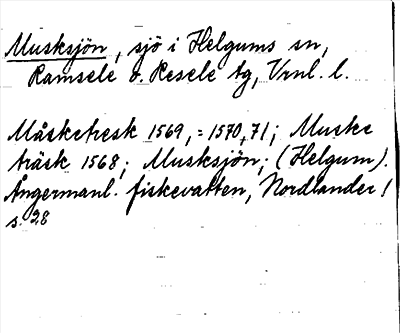 Musksjön, sjö i Helgums sn,
Ramsele o. Resele tg, Vrnl. l.
Måsketresk 1569, = 1570, 71; Muske
träsk 1568; Musksjön; (Helgum).
Ångermanl. fiskevatten, Nordlander /
s. 28